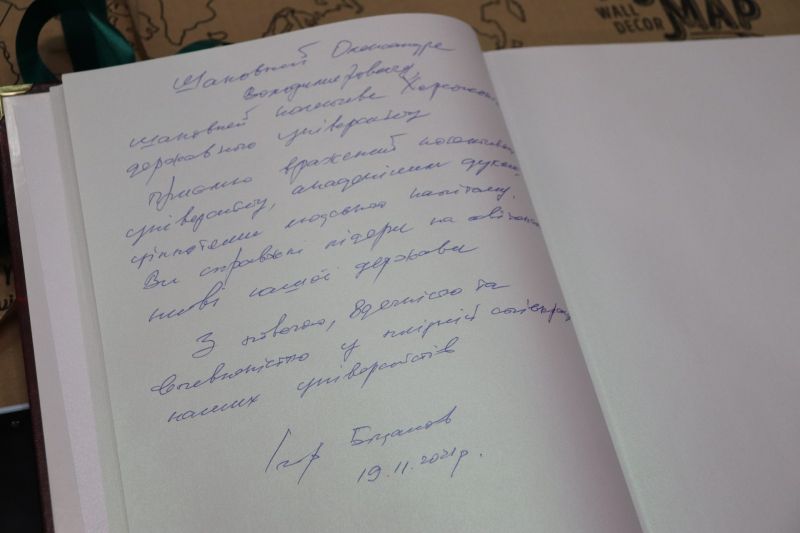 WALL
DECOR
MAP
Шановний Олександре
Володимирович,
Шановний колективе Херсонсь
державного університету
Приємно вражений потенціалом
університету, академічним духом,
цінностями людського капіталу.
Ви справжні лідери на освітянсь
ниві нашої держави
З повагою, вдячністю та
впевненістю у плідній співпраці
наших університетів
Ігор
19.11.2021р.